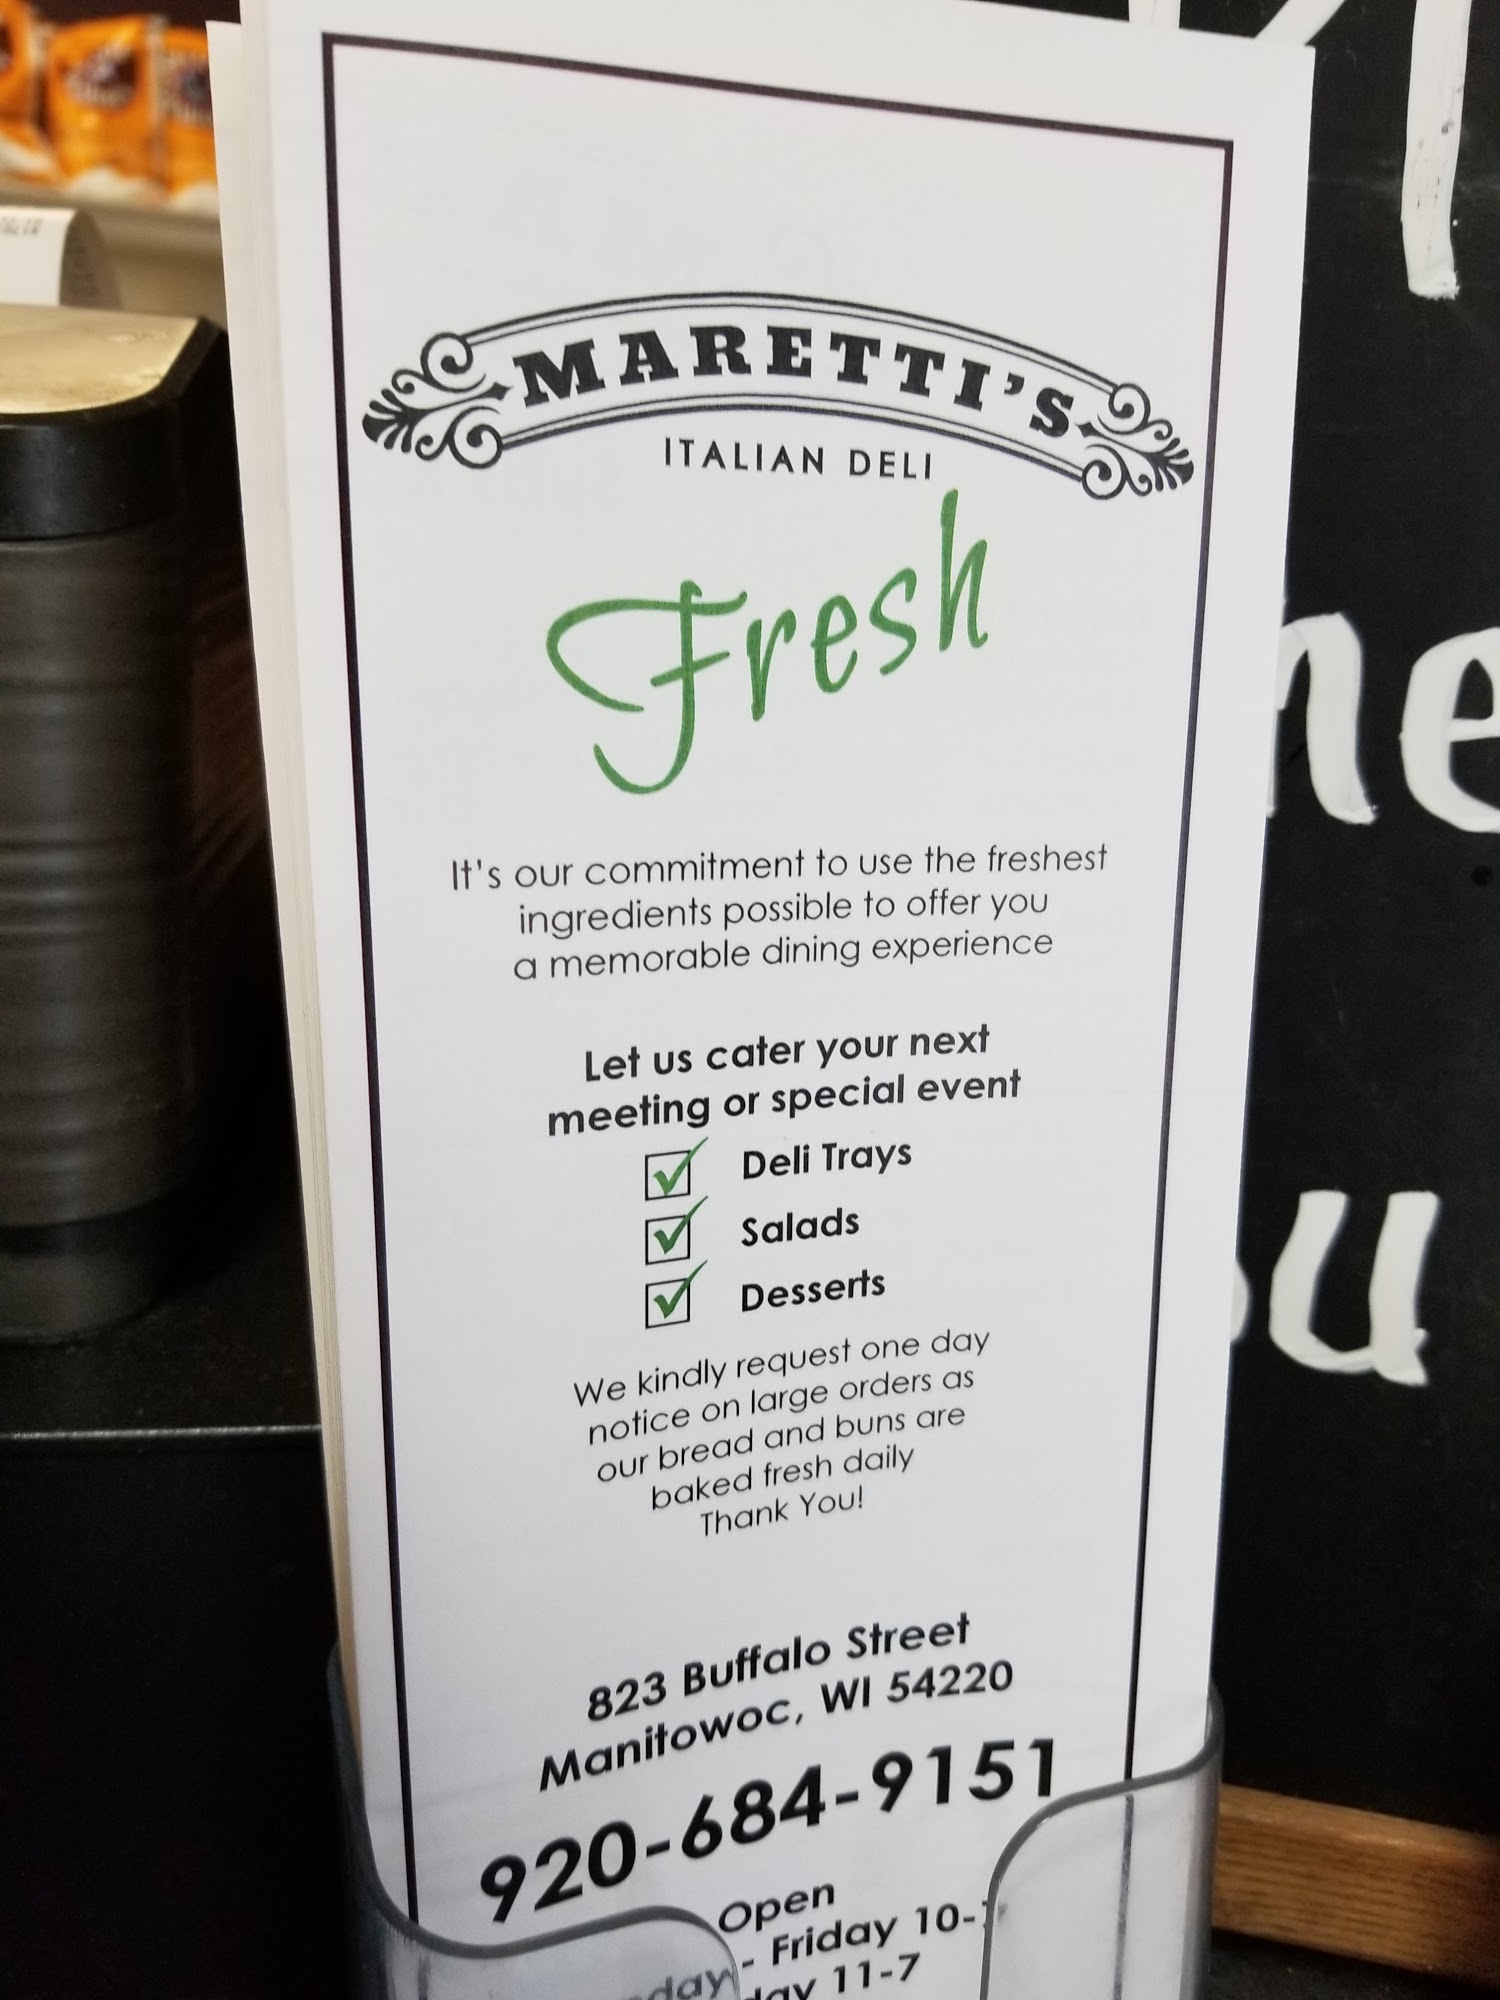 MARETTI'S
ITALIAN DELI
Fresh
It's our commitment to use the freshest
ingredients possible to offer you
a memorable dining experience
Let us cater your next
meeting or special event
Deli Trays
Salads
Desserts
We kindly request one day
notice on large orders as
our bread and buns are
baked fresh daily
Thank You!
823 Buffalo Street
Manitowoc, WI 54220
920-684-9151
Open
- Friday 10-
11-7